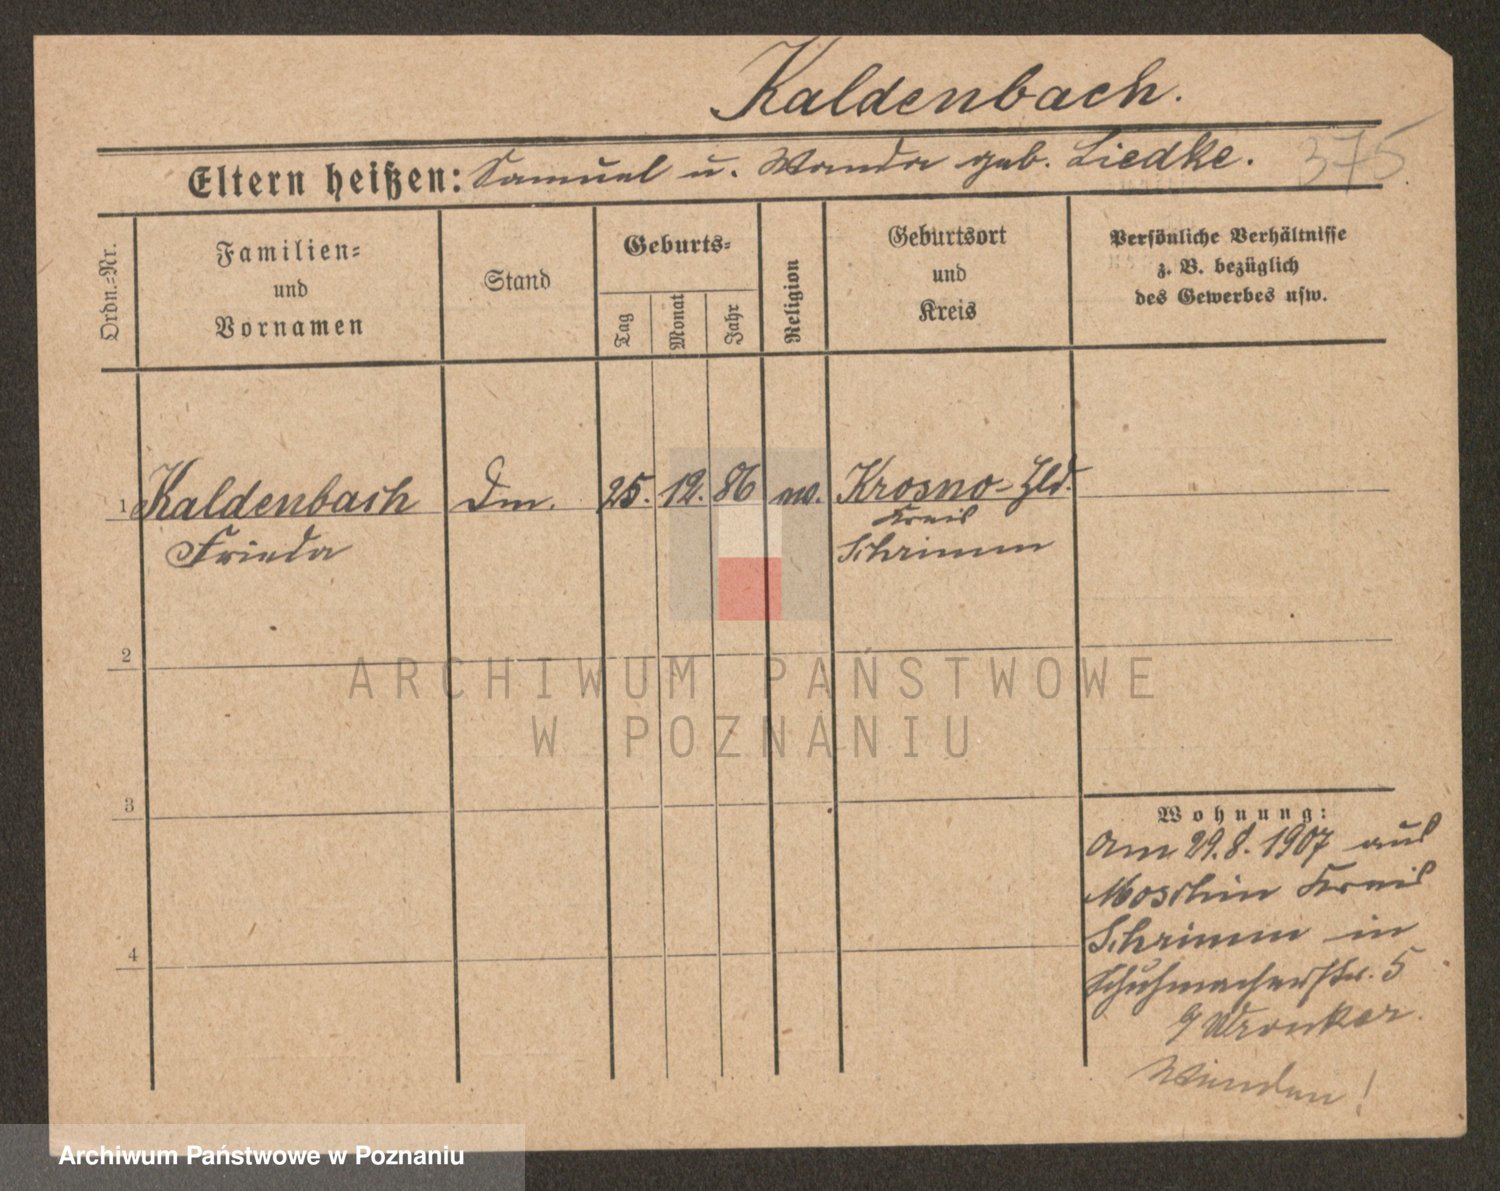 Kaldenbach.
Eltern heißen: Samuel u. Wanda geb. Liedke.
375
Ordn.-Nr.
Familien-
und
Vornamen
Stand
Geburts-
Tag
Monat
Jahr
Religion
Geburtsort
und
Kreis
Persönliche Verhältnisse
z. B. bezüglich
des Gewerbes usw.
1 Kaldenbach Dm. 25. 12. 86 ev. Krosno-Hld.
Frieda
Kreis
Schrimm
2
3
4
Wohnung:
Am 29.8.1907 aus
Moschin Kreis
Schrimm in
Schuhmacherstr. 5
Wronker
ARCHIWUM PAŃSTWOWE
W POZNANIU
Archiwum Państwowe w Poznaniu